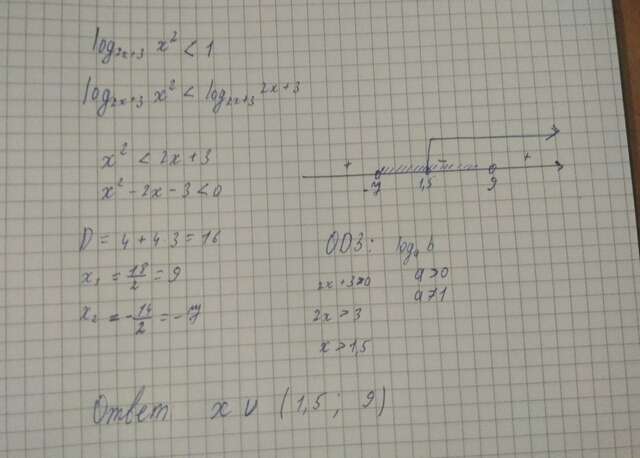 log₂ₓ₊₃ x² < 1
log₂ₓ₊₃ x² < log₂ₓ₊₃ 2x+3
x² < 2x+3
x² - 2x - 3 < 0
+ - +
-7 1,5 9
D = 4 + 4·3 = 16
x₁ = 18/2 = 9
x₂ = -14/2 = -7
ОДЗ: logₐ b
a>0
a≠1
2x+3>0
2x>3
x>1,5
Ответ x ∪ (1,5; 9)